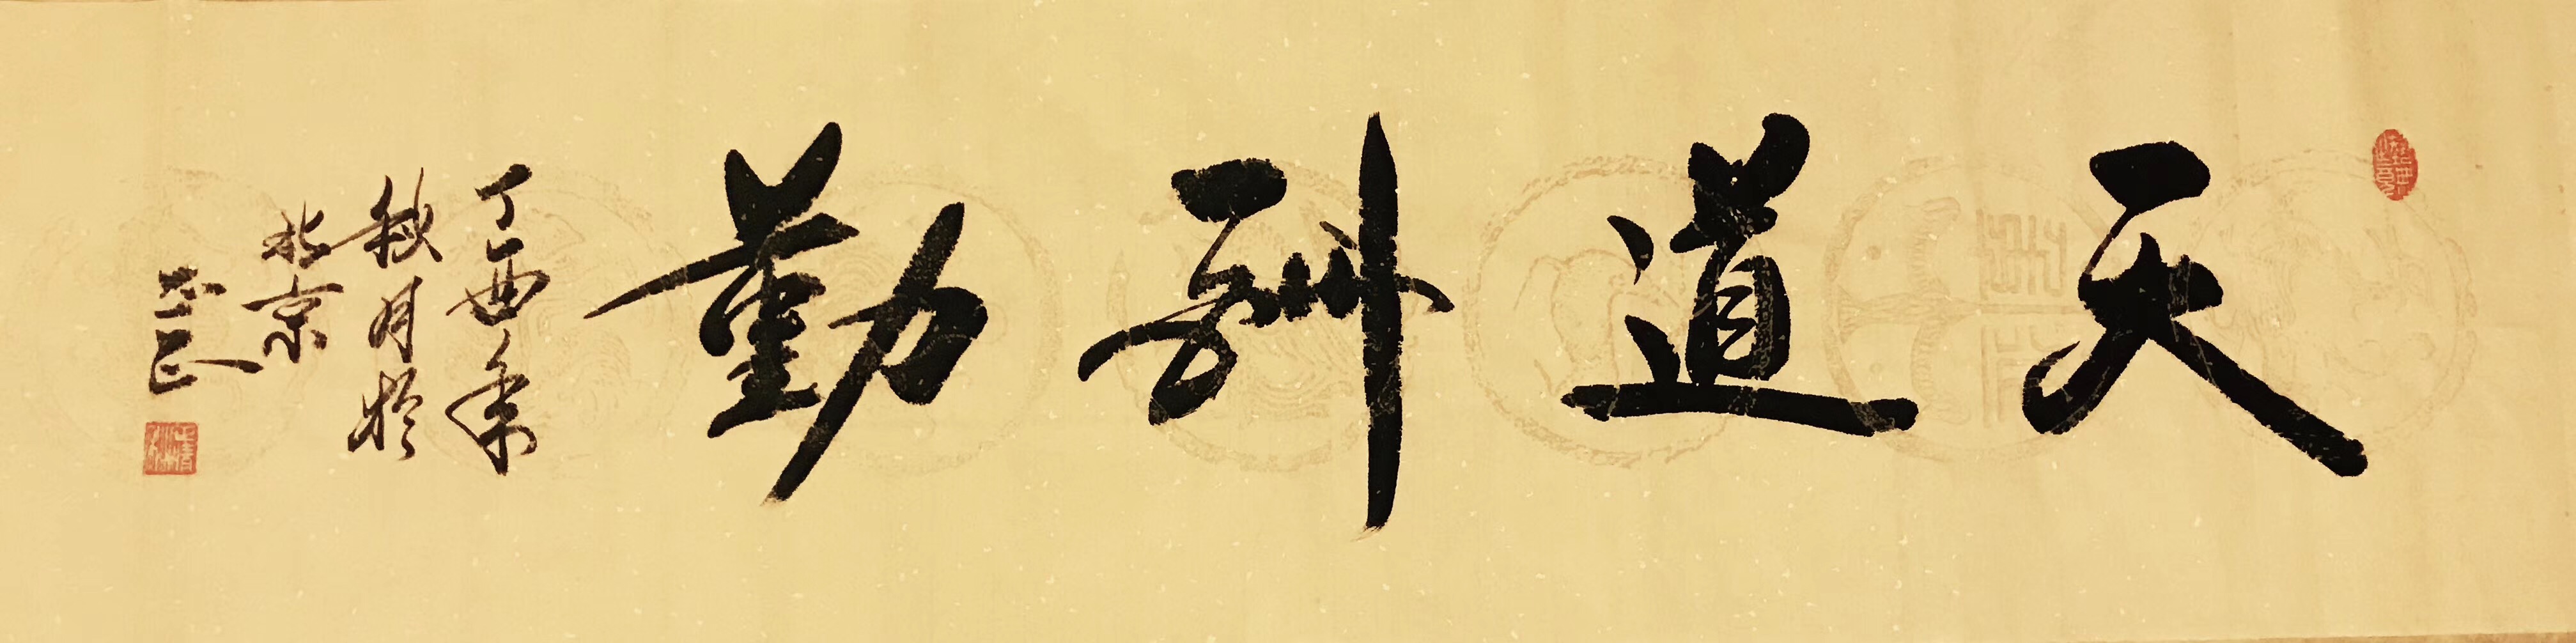 天道酬勤
丁酉年
秋月於
北京